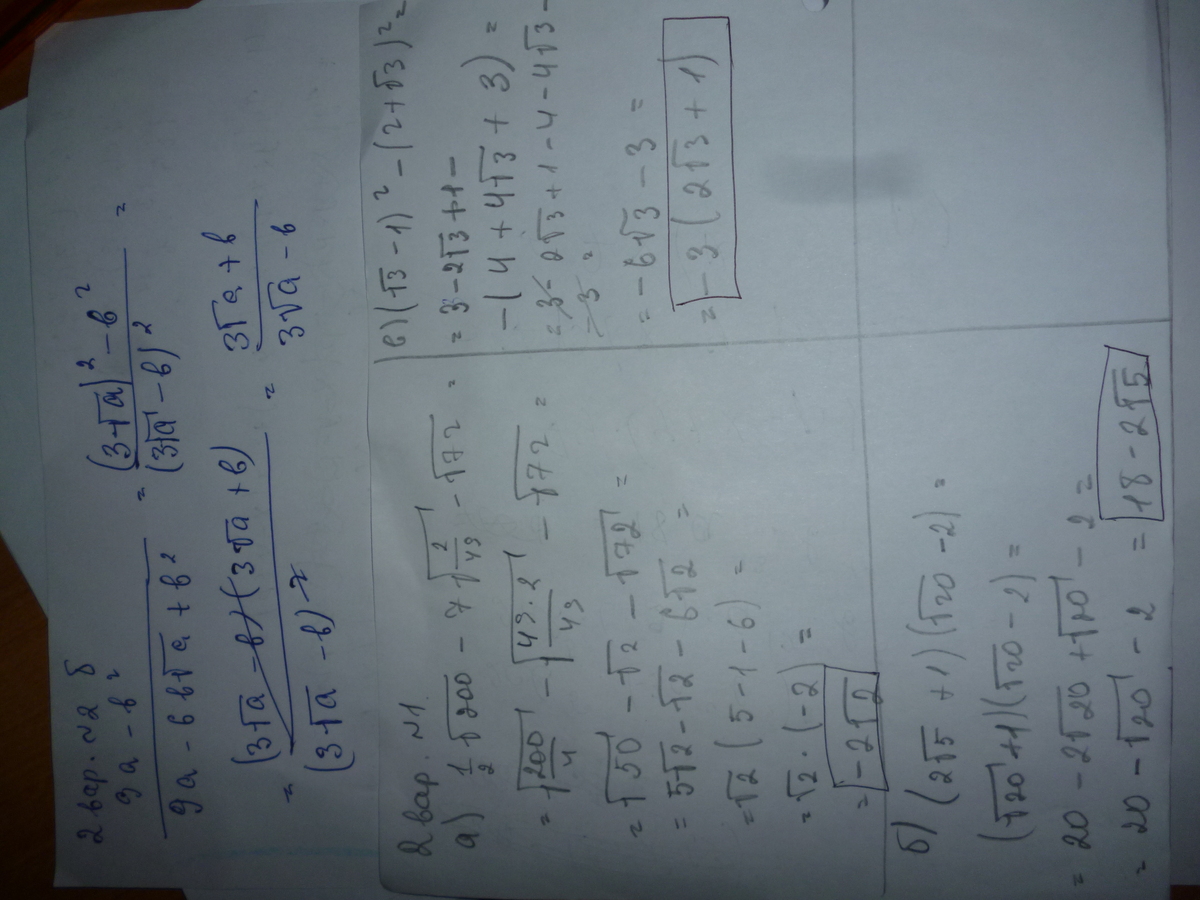 2 вар. №2 б
9a - b² / 9a - 6b√a + b² = (3√a)² - b² / (3√a - b)² =
= (3√a - b)(3√a + b) / (3√a - b)² = 3√a + b / 3√a - b
2 вар. №1
а) 1/2 √200 - 7√(2/49) - √72 =
= √(200/4) - √(49·2/49) - √72 =
= √50 - √2 - √72 =
= 5√2 - √2 - 6√2 =
= √2 (5 - 1 - 6) =
= √2 · (-2) =
= -2√2
б) (2√5 + 1)(√20 - 2) =
(√20 + 1)(√20 - 2) =
= 20 - 2√20 + √20 - 2 =
= 20 - √20 - 2 = 18 - 2√5
в) (√3 - 1)² - (2 + √3)² =
= 3 - 2√3 + 1 -
- (4 + 4√3 + 3) =
= 3 - 2√3 + 1 - 4 - 4√3 -
- 3 =
= -6√3 - 3 =
= -3 (2√3 + 1)